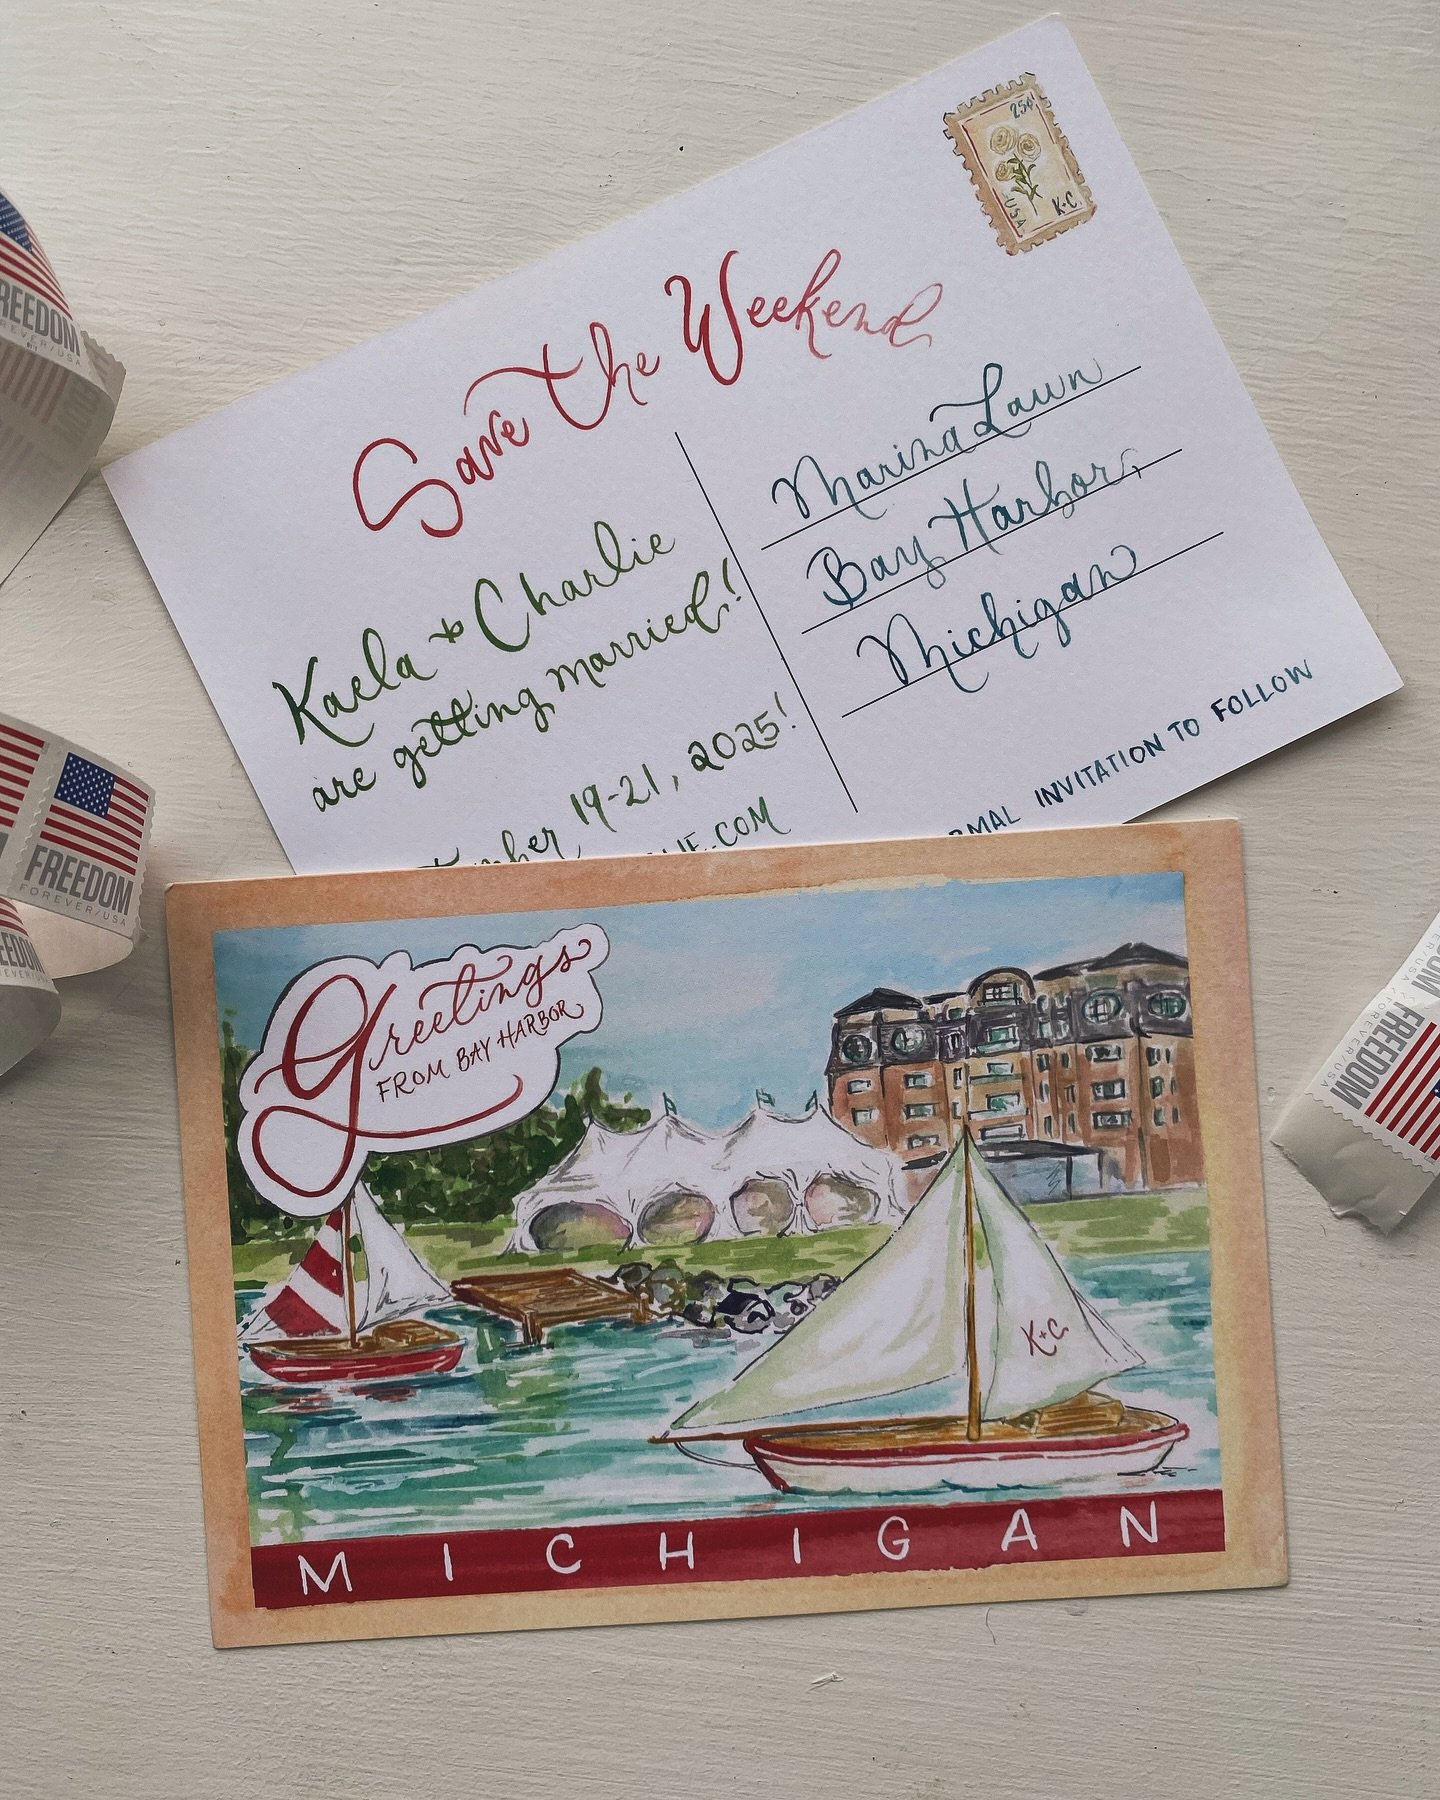 25¢
USA
K+C
Save the Weekend
Kaela + Charlie
are getting married!
19-21, 2025!
.COM
Marina Lawn
Bay Harbor,
Michigan
INVITATION TO FOLLOW
Greetings
FROM BAY HARBOR
K+C
MICHIGAN
FREEDOM
FOREVER/USA
FREEDOM
FOREVER/USA
FREEDOM
FOREVER/USA